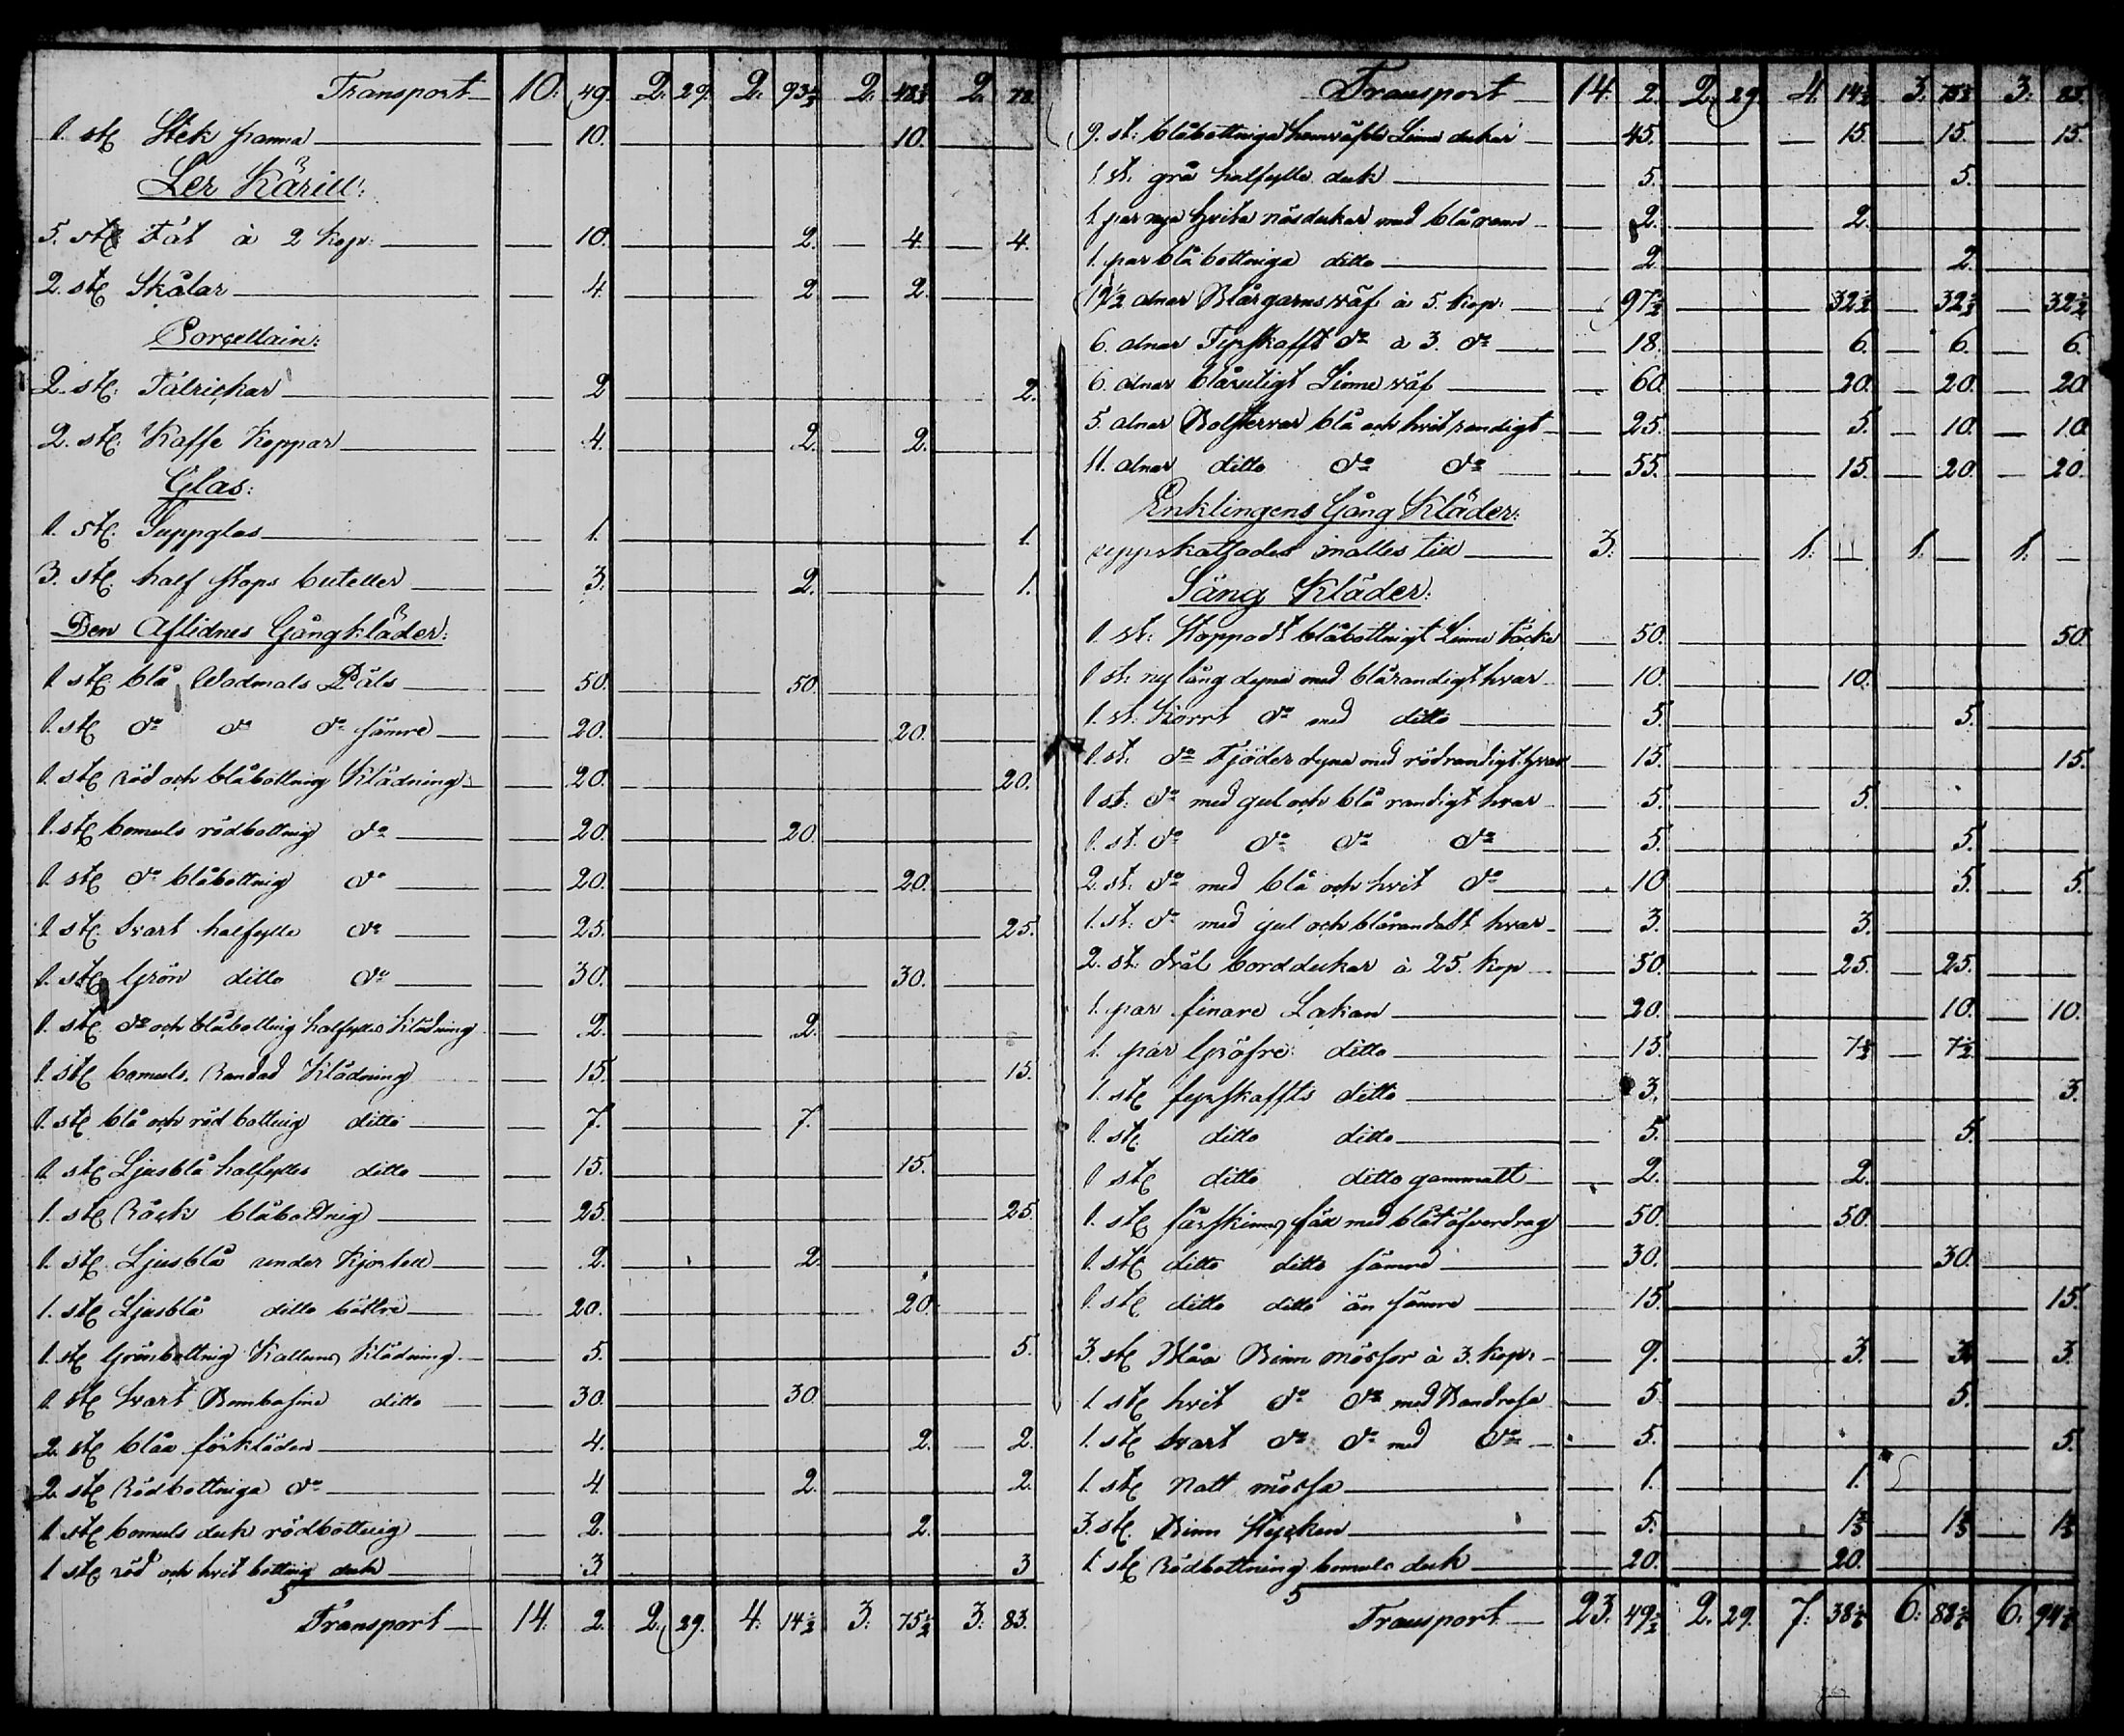 Transport 10. 49. 2. 29. 2. 93½ 2. 48½ 2. 78.
1. st Stek panna 10. 10.
Ler Kärill:
5. st Fat à 2 Kop: 10. 2. 4. 4.
2. st Skålar 4. 2. 2.
Porcellain:
2. st: Talrickar 2 2.
2. st: Kaffe Koppar 4. 2. 2.
Glas:
1. st: Suppglas 1. 1.
3. st. half stops buteller 3. 2. 1.
Den Aflidnes Gångkläder:
1 st: blå Wadmals Päls 50. 50
1. st do do do sämre 20. 20.
1. st röd och blåbottnig Klädning 20. 20.
1. st bomuls rödbottnig do 20. 20.
1. st do blåbottnig do 20. 20.
1 st. svart halfylle do 25. 25.
1. st Grön ditto do 30. 30.
1. st do och blåbottnig halfylles Klädning 2. 2.
1. st bomuls Randad Klädning 15. 15.
1. st blå och röd bottnig ditto 7. 7.
1 st Ljusblå halfylles ditto 15. 15.
1. st Röck blåbottnig 25. 25.
1. st. Ljusblå under Kjortell 2. 2.
1. st Ljusblå ditto bättre 20. 20.
1. st Grönbottnig Kattuns Klädning 5. 5.
1 st svart Bombasine ditto 30. 30.
2. st blåa förkläden 4. 2. 2.
2. st Rödbottniga do 4 2. 2.
1 st bomuls duk rödbottnig 2. 2.
1 st röd och hvit bottnig duk 3. 3
Transport 14. 2. 2. 29. 4. 14½ 3. 75½ 3. 83.
Transport 14. 2. 2. 29. 4. 14½ 3. 75½ 3. 83.
9. st: blåbottniga hemväfda Linne dukar 45. 15. 15. 15.
1 st: grå halfylle duk 5. 5.
1. par nya hvita näsdukar med blå rand 2. 2.
1. par blåbottniga ditto 2 2
19½ alnar Blårgarnsväf à 5. Kop: 97½ 32½ 32½ 32½
6. alnar Fyrskafft do à 3. do 18. 6. 6. 6.
6. alnar blårutigt Linne väf 60 20. 20. 20
5. alnar Bolstervar blå och hvit randigt 25. 5. 10. 10
11. alnar ditto do do 55. 15. 20. 20.
Enklingens Gång Kläder:
uppskattades inalles till 3. 1. 1. 1.
Säng Kläder:
1. st: Stoppadt blåbottnigt Linne täcke 50. 50
1 st: ny lång dyna med blårandigt hvar 10. 10.
1. st: Korrt do med ditto 5. 5.
1. st. do Fjöder dyna med rödrandigt hvar 15. 15.
1 st: do med gul och blå randigt hvar 5. 5.
1. st. do do do do 5. 5.
2. st: do med blå och hvit do 10 5. 5.
1. st: do med gul och blårandatt hvar 3. 3.
2. st: dräl borddukar à 25. Kop 50. 25. 25.
1. par finare Lakan 20. 10. 10.
1. par Gröfre ditto 15. 7½ 7½
1. st fyrskaffts ditto 3. 3.
1. st. ditto ditto 5. 5.
1 st ditto ditto gammalt 2. 2.
1. st fårskinns fäll med blåt öfverdrag 50. 50.
1. st ditto ditto sämre 30. 30.
1. st ditto ditto än sämre 15. 15.
3. st Blåa Binn mössor à 3. Kop: 9. 3. 3. 3.
1. st hvit do do med 5. 5.
1. st svart do do med do 5. 5.
1. st Natt mössa 1. 1.
3. st. Binn stycken 5. 1⅔ 1⅔ 1⅔
1 st Rödbottning bomuls duk 20. 20.
Transport 23. 49½ 2. 29. 7. 38⅙ 6. 88⅙ 6. 94⅙